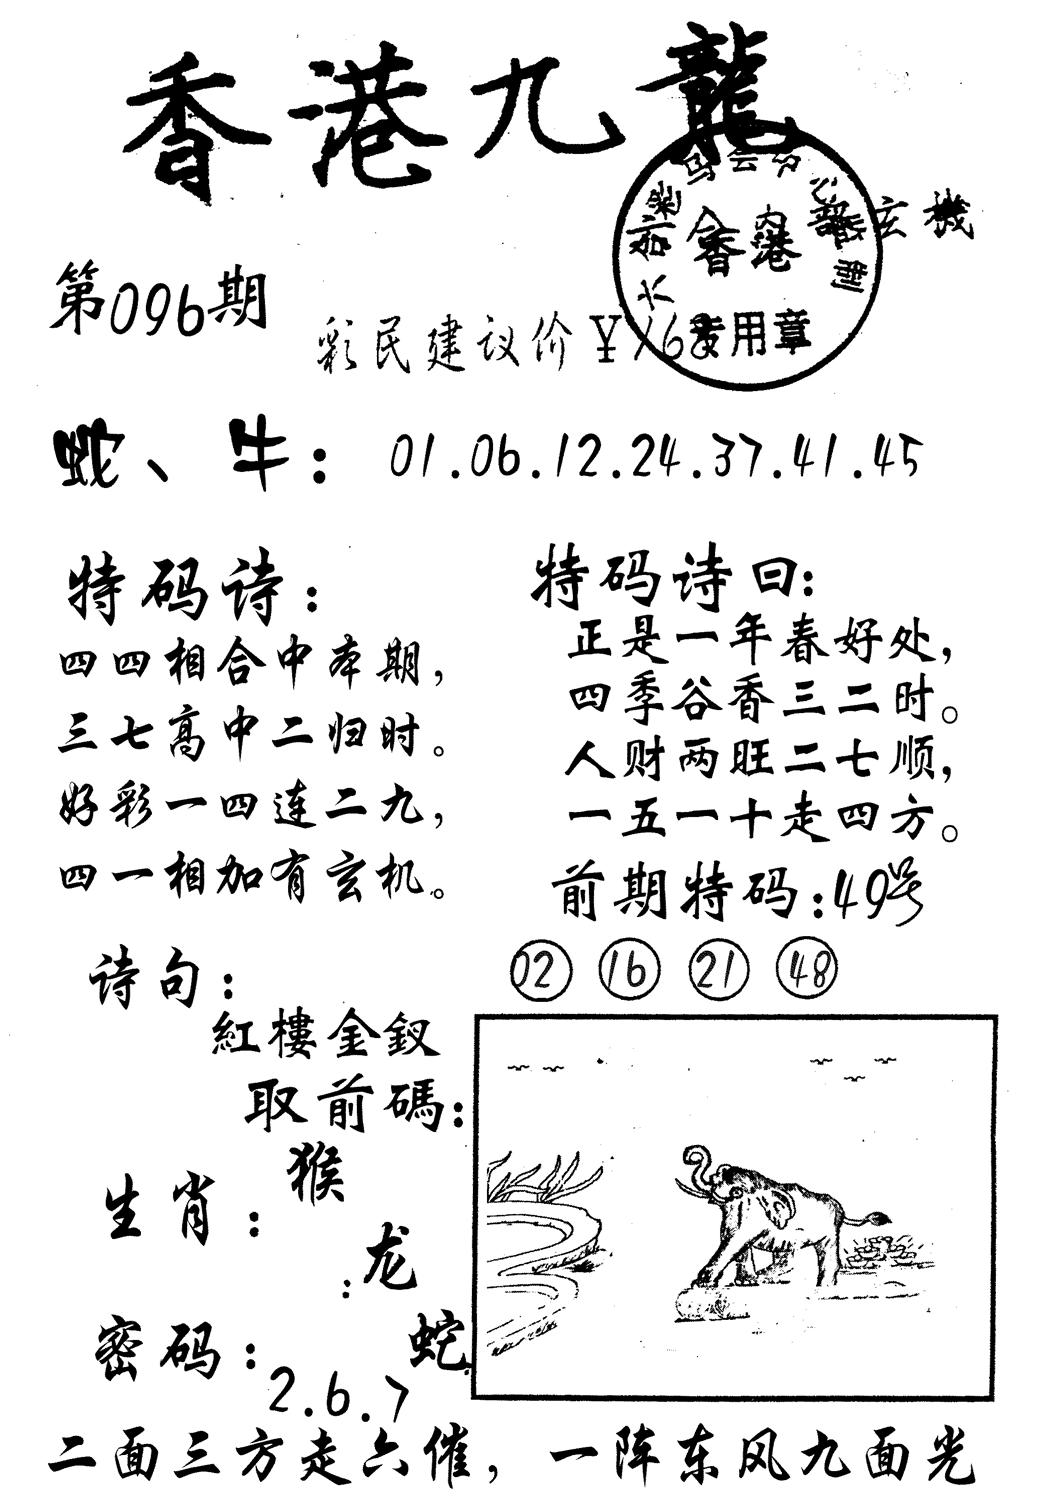 香港九龍
玄機
香港
专用章
第096期
彩民建议价￥168
蛇、牛：01.06.12.24.37.41.45
特码诗：
四四相合中本期，
三七高中二归时。
好彩一四连二九，
四一相加有玄机。
特码诗曰：
正是一年春好处，
四季谷香三二时。
人财两旺二七顺，
一五一十走四方。
前期特码：49号
02 16 21 48
诗句：
紅樓金釵
取前碼：
生肖：猴
：龙
蛇
密码：2.6.7
二面三方走六催，一阵东风九面光